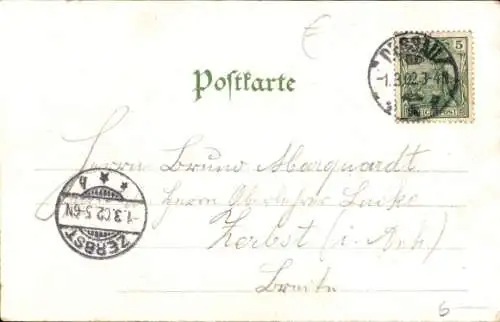 DESSAU
-1.3.02.3-4N.
5
Postkarte
Herrn Bruno Marquardt
Herrn Oberlehrer
Zerbst (i. Anh)
Breite
ZERBST
-1.3.02 5-6N
* b *
6